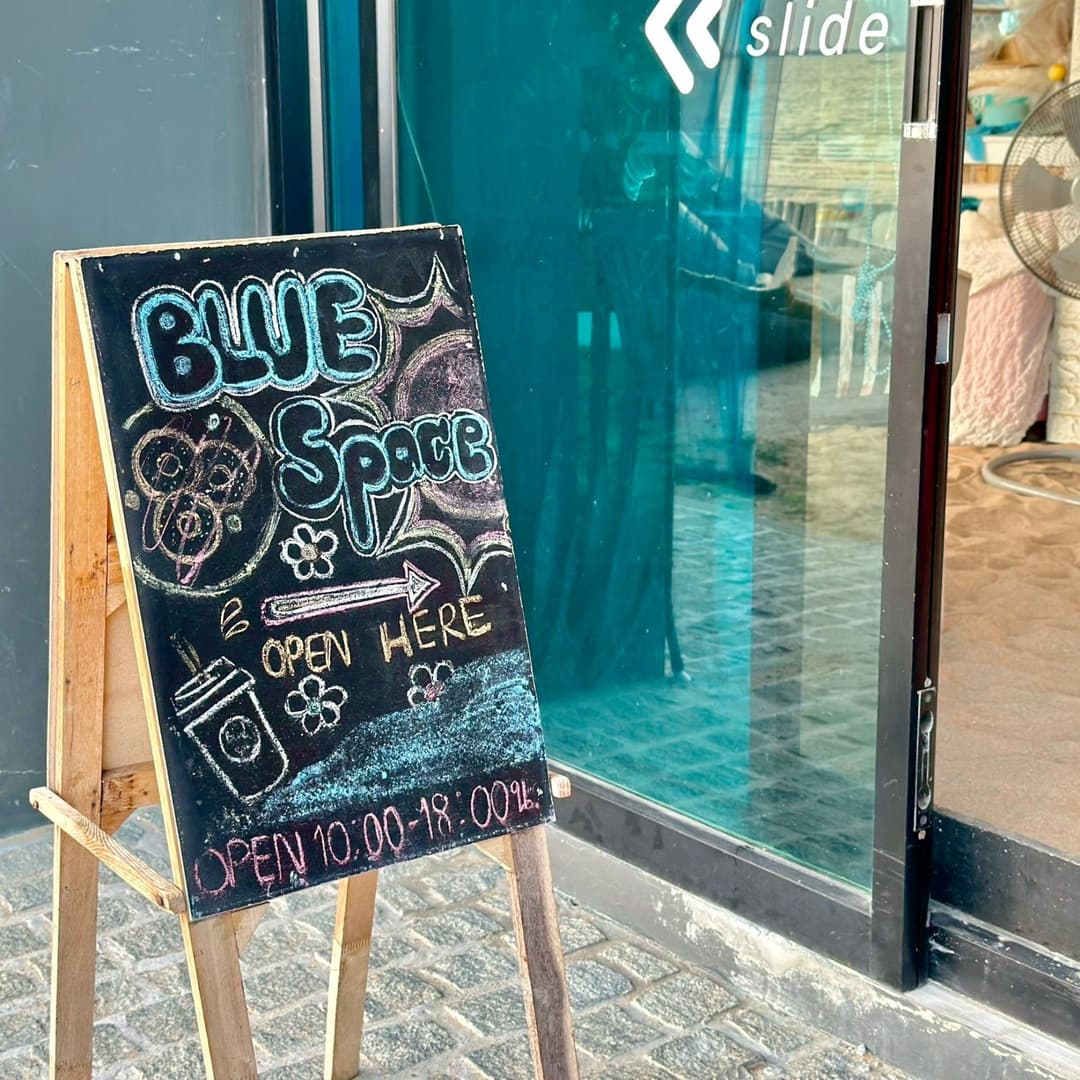 slide
BLUE
Space
OPEN HERE
OPEN 10:00-18:00น.